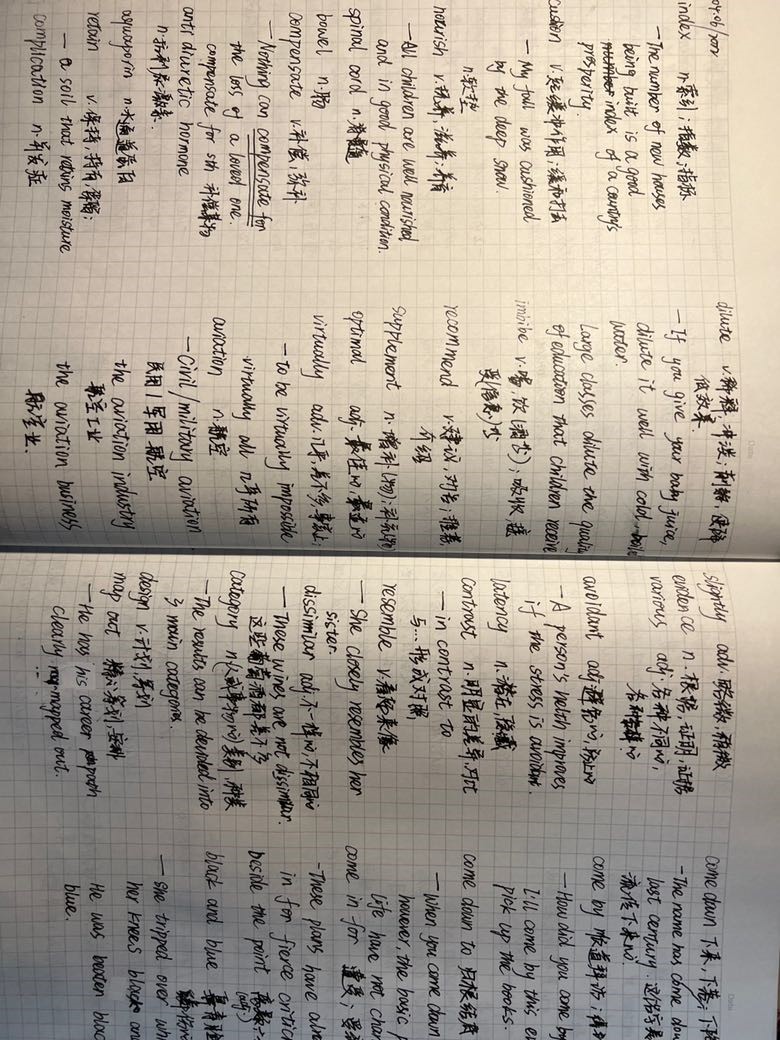 04.06/2022
index n.索引；指数；指标
—The number of new houses
being built is a good
index of a country's
prosperity.
cushion v.起缓冲作用；缓和打击
n.软垫
— My fall was cushioned
by the deep snow.
nourish v.培养，滋养，养育
—All children are well nourished
and in good physical condition.
spinal cord n.脊髓
bowel n.肠
compensate v.补偿，弥补
—Nothing can compensate for
the loss of a loved one.
compensate for sth 补偿某物
anti diuretic hormone
n.抗利尿激素.
aquaporin n.水通道蛋白
retain v.保持，持有，
— a soil that retains moisture
complication n.并发症
dilute v.稀释，冲淡；削弱，
低效果
— If you give your baby juice,
dilute it well with cold
water.
Large classes dilute the quality
of education that children receive
imbibe v.喝，饮(酒等)；吸收
(信息)等
recommend v.建议，推荐，
介绍
supplement n.增补(物)；补充物
optimal adj.最佳的，最适的
virtually adv.几乎，差不多，事实上；
— to be virtually impossible
virtually all 几乎所有
aviation n.航空
— Civil/military aviation
民用/军用航空
the aviation industry
航空工业
the aviation business
航空业.
slightly adv.略微，稍微
evidence n.根据，证明，证据
various adj.各种不同的，
各种各样的
avoidant adj.
— A person's health improves
if the stress is avoidant.
latency n.潜在，
contrast n.明显的差异，对比
— in contrast to
与...形成对照
resemble v.看起来像
— She closely resembles her
sister
dissimilar adj.不一样的，不相同的
— These wines are not dissimilar.
这些葡萄酒都差不多
category n.(人或事物的)类别，种类
—The results can be devided into
3 main categories.
design v.计划，筹划
map out 筹划，安排
—He has his career path
clearly mapped out.
come down 下来，下落；下降
-The name has come down
last century.
流传下来的
come by 顺道拜访；
—How did you come by
I'll come by this
pick up the books.
come down to 归根结底
— When you come down
however, the basic
life have not
come in for 遭受，
-These plans have
in for fierce
beside the point
black and blue
— She tripped over
her knees black and
He was beaten
blue.